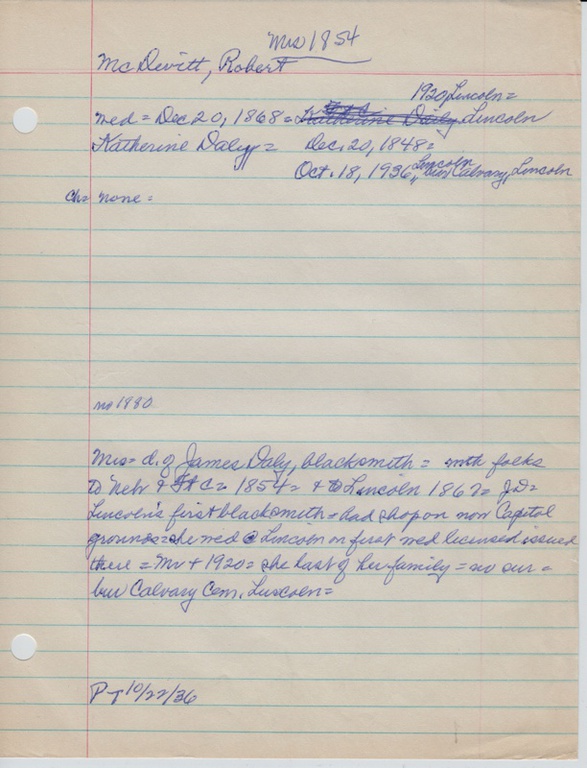 Mrs 1854
McDevitt, Robert
1920, Lincoln =
med = Dec 20, 1868 = Lincoln
Katherine Daly = Dec. 20, 1848 =
Oct. 18, 1936, Lincoln bur Calvary, Lincoln
ch = none =
no 1880
Mrs = d. of James Daly, blacksmith = with folks
to Nebr & Ft C = 1854 = + to Lincoln 1867 = J.D =
Lincoln's first blacksmith = had shop on now Capitol
grounds = she med @ Lincoln on first med licensed issued
there = Mr + 1920 = she last of her family = no sur =
bur Calvary Cem. Lincoln =
P-T 10/22/36